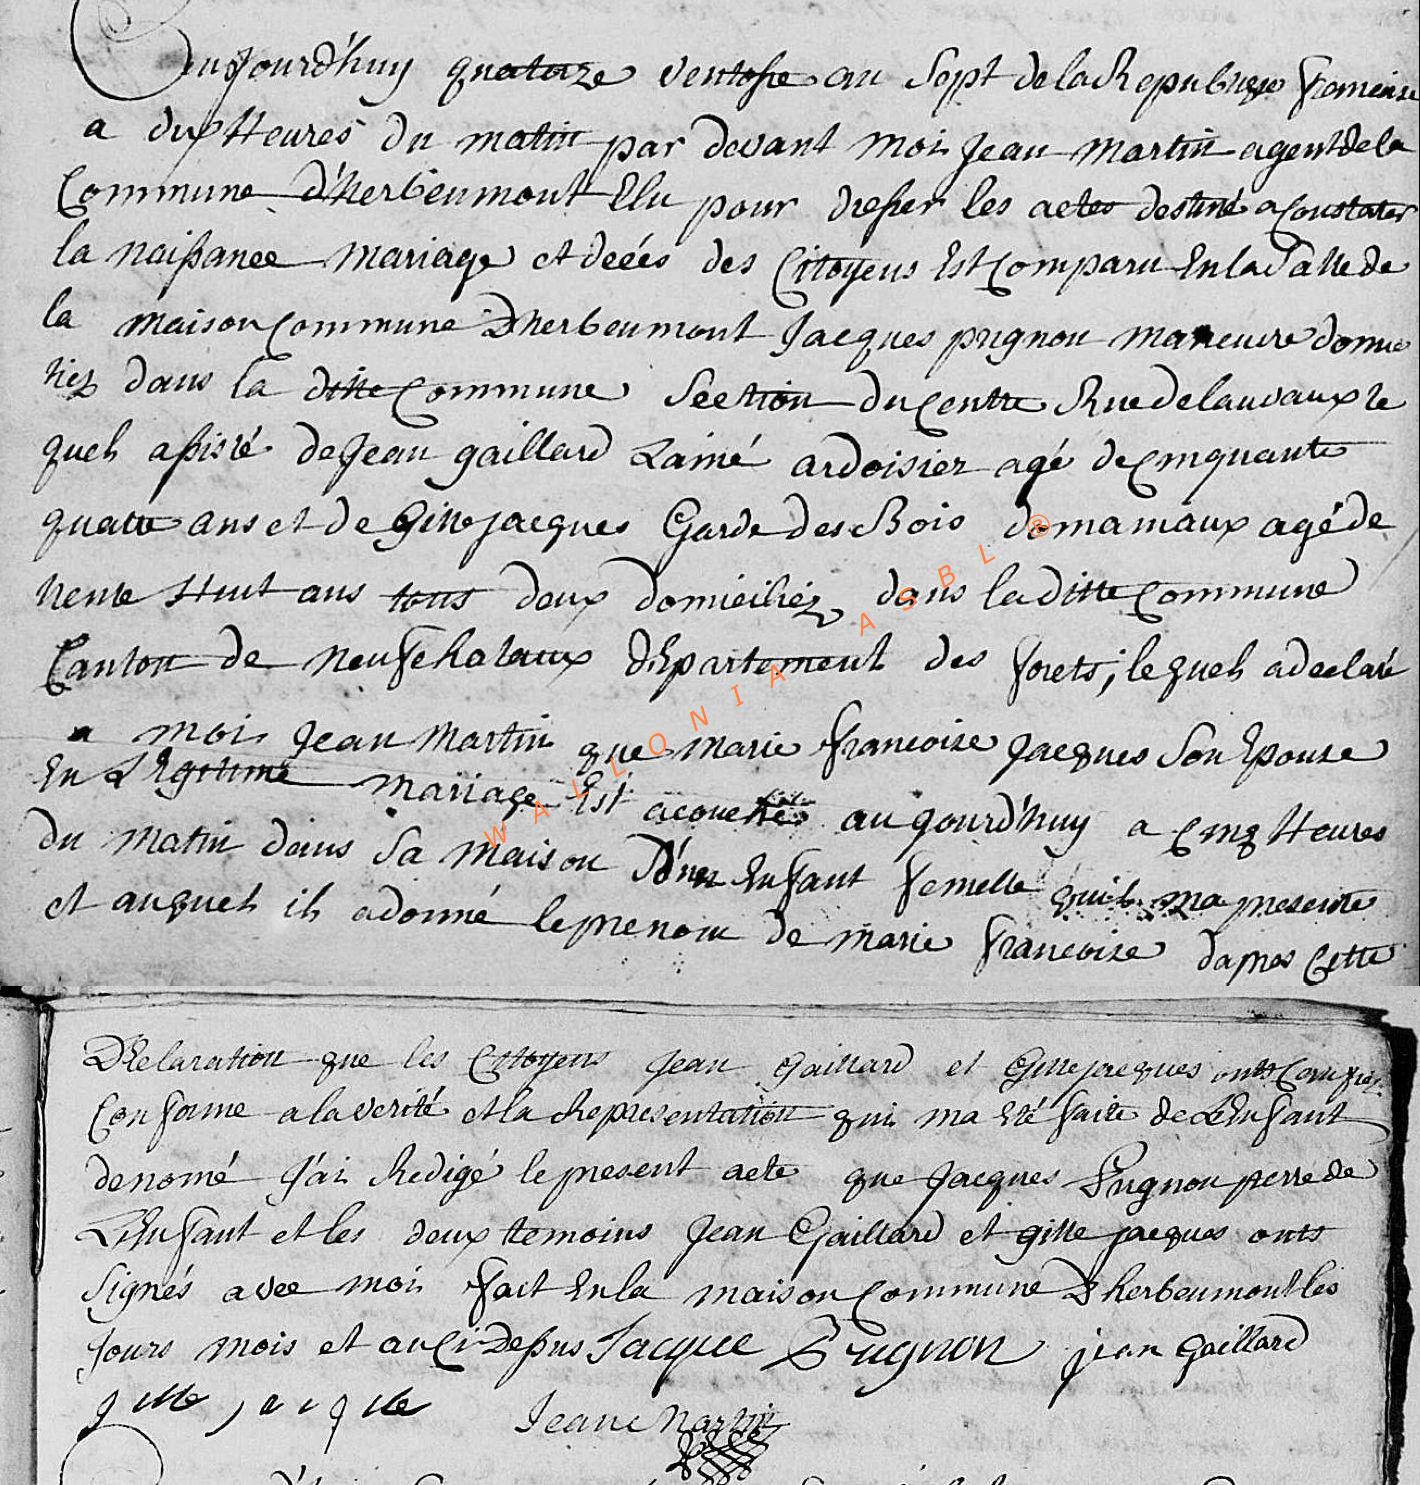 aujourd'huy quatorze ventose an Sept de la Republique francoise
a dix Heures du matin par devant moi Jean Martin agent de la
Commune d'herbeumont Elu pour dresser les actes destiné a Constater
la naissance mariage et decés des Citoyens Est Comparu En la Salle de
la maison Commune D'herbeumont Jacques pugnon maneuvre domic
liez dans la ditte Commune Section du Centre Rue de lauvaux le
quel assisté de Jean gaillard Lainé ardoisier agé de cinquante
quatre ans et de Gille jacques Garde des Bois domaniaux agé de
trente Huit ans tous deux domiciliéz dans la ditte Commune
Canton de neufchataux dEpartement des forets, lequel a declaré
a moi Jean Martin que marie francoise Jacques Son Epouse
En LEgitime mariage Est acouché aujourd'huy a cinq Heures
du matin dans Sa maison D'un Enfant femelle quil ma presenté
et auquel il a donné le prenom de marie francoise dapres Cette
DEclaration que les Citoyens Jean Gaillard et Gille jacques onts
Conforme a la verité et la Representation qui ma Eté faite de LEnfant
denomé J'ai Redigé le present acte que Jacques Pugnon perre de
LEnfant et les deux temoins Jean Gaillard et gille jacques onts
Signés avec moi fait En la maison Commune D'herbeumont les
Jours mois et an Ci Dessus Jacque Pugnon jean Gaillard
gille jacque Jean Martin
WALLONIA ASBL ®